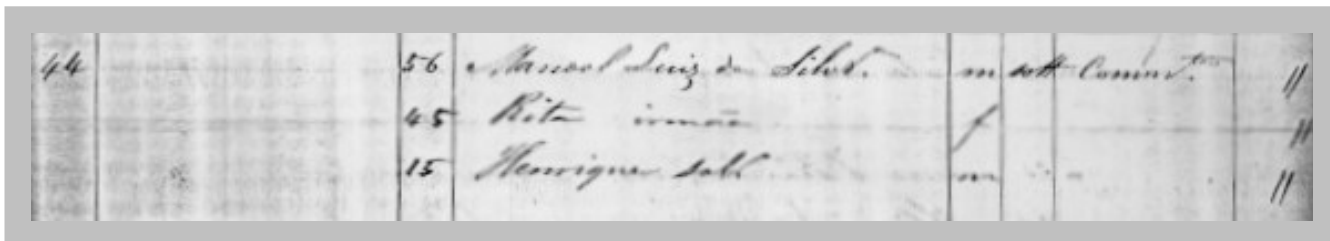 44 56 Manoel Luiz da Silva. m solt Commer.te 11
45 Rita irmã f 11
15 Henrique sob.º m " 11